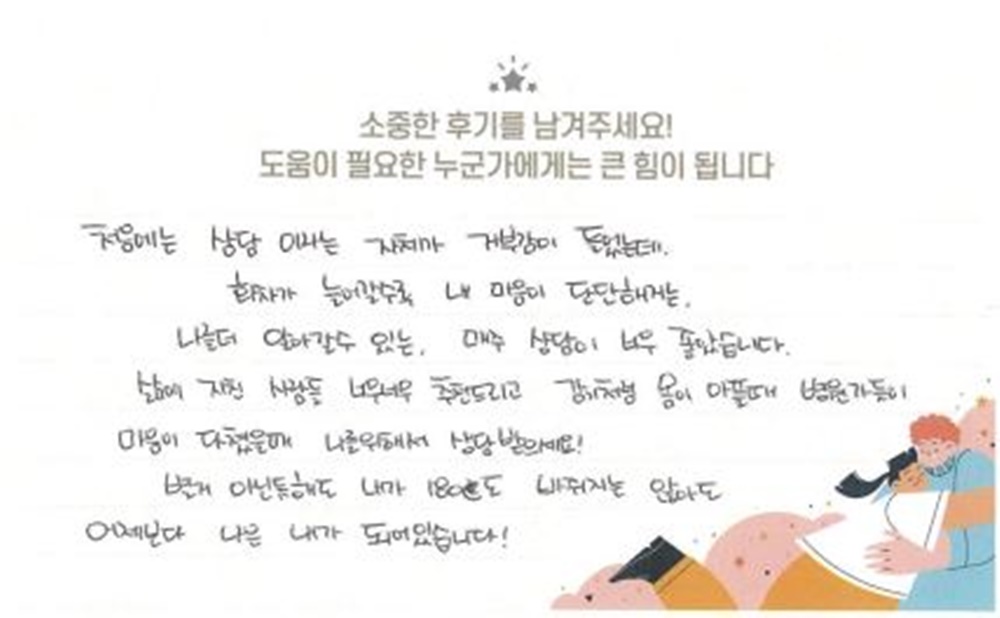 소중한 후기를 남겨주세요!
도움이 필요한 누군가에게는 큰 힘이 됩니다
처음에는 상담 이라는 자체가 거부감이 들었는데.
회차가 늘어갈수록 내 마음이 단단해지는,
나를더 알아갈수 있는, 매주 상담이 너무 좋았습니다.
삶에 지친 사람들 너무너무 추천드리고 감기처럼 몸이 아플때 병원가듯이
마음이 다쳤을때 나를위해서 상담 받으세요!
별거 아닌듯해도 내가 180도 바뀌지는 않아도
어제보다 나은 내가 되어있습니다!